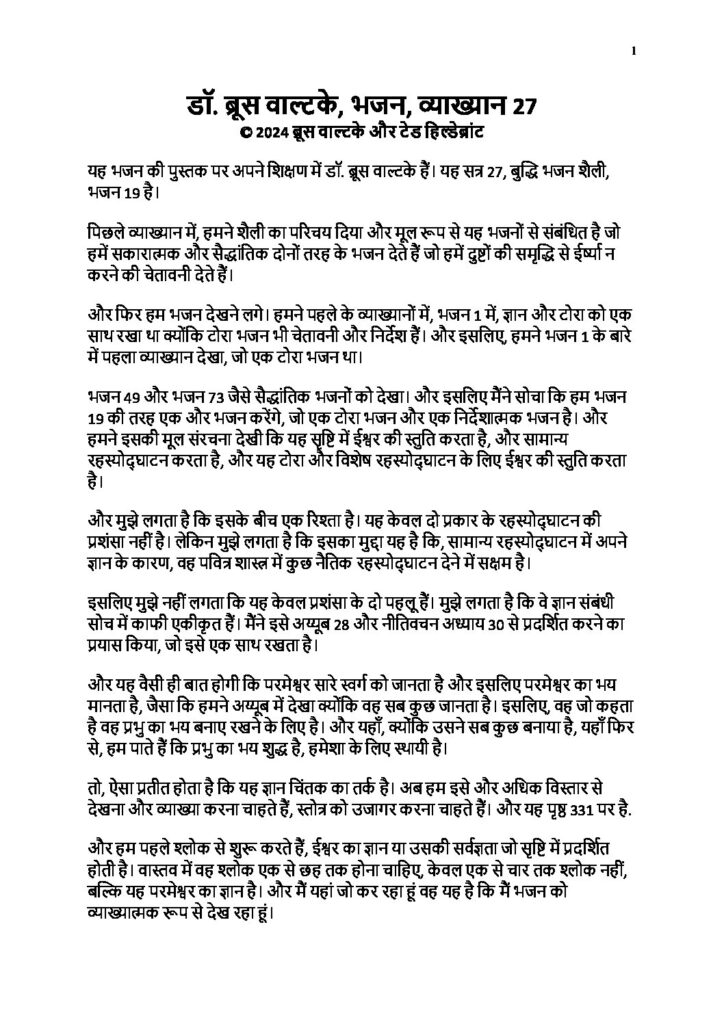 1
डॉ. ब्रूस वाल्टके, भजन, व्याख्यान 27
© 2024 ब्रूस वाल्टके और टेड हिल्डेब्रांट
यह भजन की पुस्तक पर अपने शिक्षण में डॉ. ब्रूस वाल्टके हैं। यह सत्र 27, बुद्धि भजन शैली,
भजन 19 है।
पिछले व्याख्यान में, हमने शैली का परिचय दिया और मूल रूप से यह भजनों से संबंधित है जो
हमें सकारात्मक और सैद्धांतिक दोनों तरह के भजन देते हैं जो हमें दुष्टों की समृद्धि से ईर्ष्या न
करने की चेतावनी देते हैं।
और फिर हम भजन देखने लगे। हमने पहले के व्याख्यानों में, भजन 1 में, ज्ञान और टोरा को एक
साथ रखा था क्योंकि टोरा भजन भी चेतावनी और निर्देश हैं। और इसलिए, हमने भजन 1 के बारे
में पहला व्याख्यान देखा, जो एक टोरा भजन था।
भजन 49 और भजन 73 जैसे सैद्धांतिक भजनों को देखा। और इसलिए मैंने सोचा कि हम भजन
19 की तरह एक और भजन करेंगे, जो एक टोरा भजन और एक निर्देशात्मक भजन है। और
हमने इसकी मूल संरचना देखी कि यह सृष्टि में ईश्वर की स्तुति करता है, और सामान्य
रहस्योद्घाटन करता है, और यह टोरा और विशेष रहस्योद्घाटन के लिए ईश्वर की स्तुति करता
है।
और मुझे लगता है कि इसके बीच एक रिश्ता है। यह केवल दो प्रकार के रहस्योद्घाटन की
प्रशंसा नहीं है। लेकिन मुझे लगता है कि इसका मुद्दा यह है कि, सामान्य रहस्योद्घाटन में अपने
ज्ञान के कारण, वह पवित्र शास्त्र में कुछ नैतिक रहस्योद्घाटन देने में सक्षम है।
इसलिए मुझे नहीं लगता कि यह केवल प्रशंसा के दो पहलू हैं। मुझे लगता है कि वे ज्ञान संबंधी
सोच में काफी एकीकृत हैं। मैंने इसे अय्यूब 28 और नीतिवचन अध्याय 30 से प्रदर्शित करने का
प्रयास किया, जो इसे एक साथ रखता है।
और यह वैसी ही बात होगी कि परमेश्वर सारे स्वर्ग को जानता है और इसलिए परमेश्वर का भय
मानता है, जैसा कि हमने अय्यूब में देखा क्योंकि वह सब कुछ जानता है। इसलिए, वह जो कहता
है वह प्रभु का भय बनाए रखने के लिए है। और यहाँ, क्योंकि उसने सब कुछ बनाया है, यहाँ फिर
से, हम पाते हैं कि प्रभु का भय शुद्ध है, हमेशा के लिए स्थायी है।
तो, ऐसा प्रतीत होता है कि यह ज्ञान चिंतक का तर्क है। अब हम इसे और अधिक विस्तार से
देखना और व्याख्या करना चाहते हैं, स्तोत्र को उजागर करना चाहते हैं। और यह पृष्ठ 331 पर है.
और हम पहले श्लोक से शुरू करते हैं, ईश्वर का ज्ञान या उसकी सर्वज्ञता जो सृष्टि में प्रदर्शित
होती है। वास्तव में वह श्लोक एक से छह तक होना चाहिए, केवल एक से चार तक श्लोक नहीं,
बल्कि यह परमेश्वर का ज्ञान है। और मैं यहां जो कर रहा हूं वह यह है कि मैं भजन को
व्याख्यात्मक रूप से देख रहा हूं।